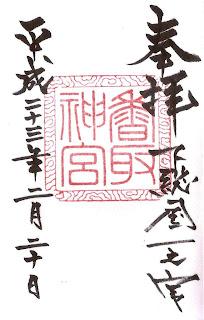 奉拝 下総国一之宮
香取
神宮
平成二十三年二月二十日